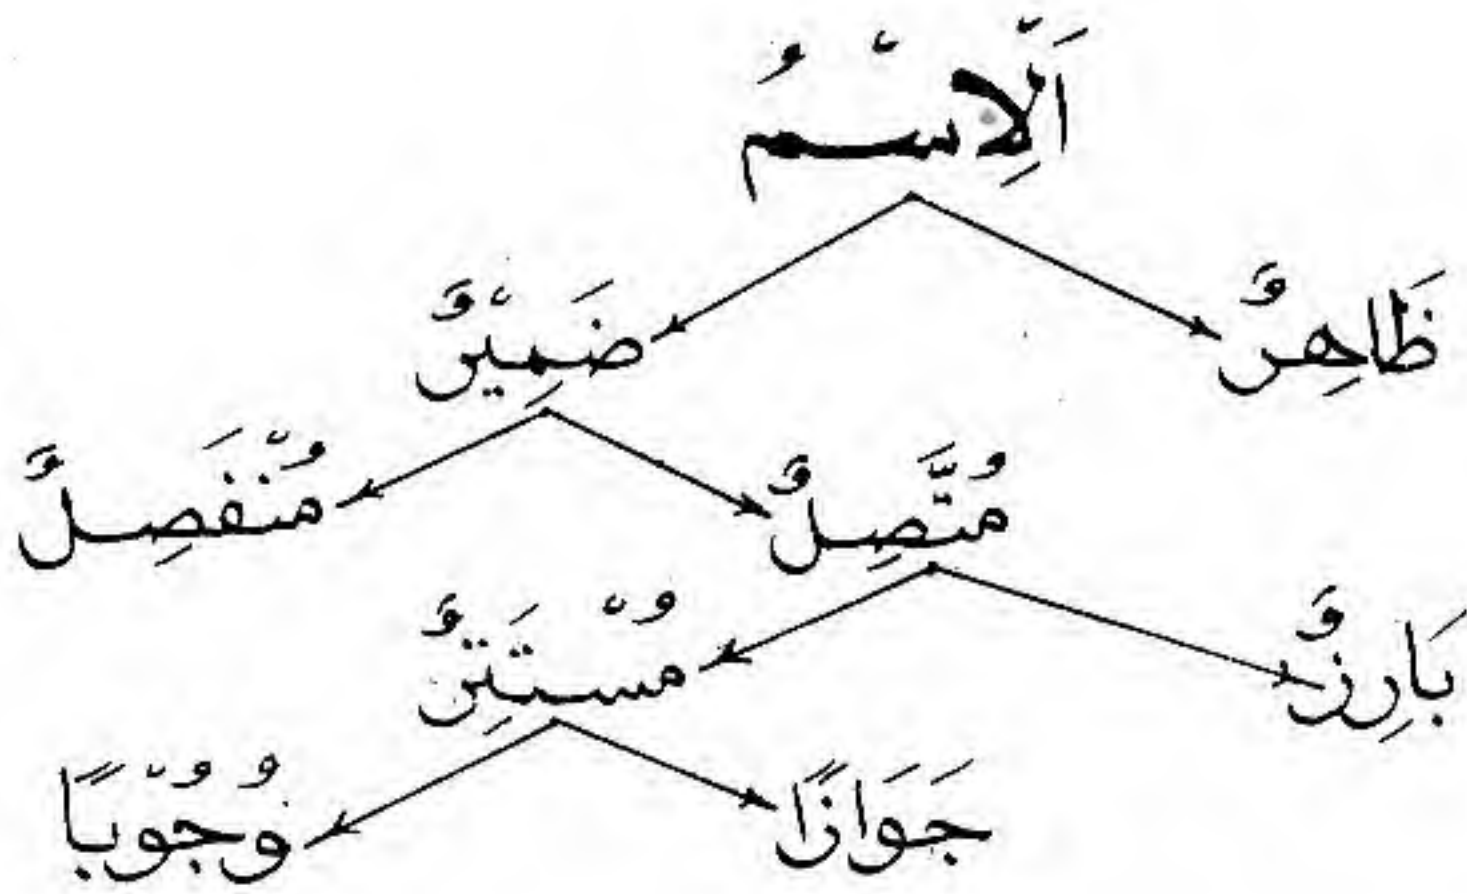 اَلْاِسْمُ
ظَاهِرٌ ضَمِيْرٌ
مُتَّصِلٌ مُنْفَصِلٌ
بَارِزٌ مُسْتَتِرٌ
جَوَازًا وُجُوْبًا